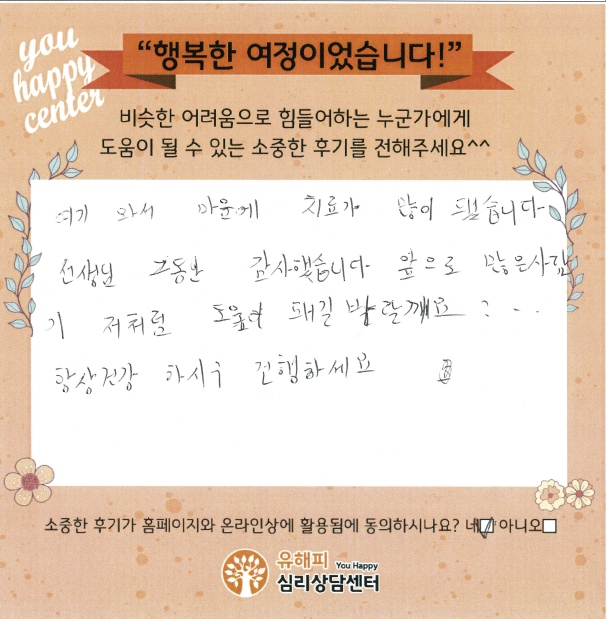 you
happy
center
“행복한 여정이었습니다!”
비슷한 어려움으로 힘들어하는 누군가에게
도움이 될 수 있는 소중한 후기를 전해주세요^^
여기 와서 마음에 치료가 많이 됐습니다
선생님 그동안 감사했습니다 앞으로 많은사람
기 저처럼 도움이 돼길 바랄께요 : ...
항상건강 하시구 진행하세요
소중한 후기가 홈페이지와 온라인상에 활용됨에 동의하시나요? 네☑ 아니오☐
유해피 You Happy
심리상담센터